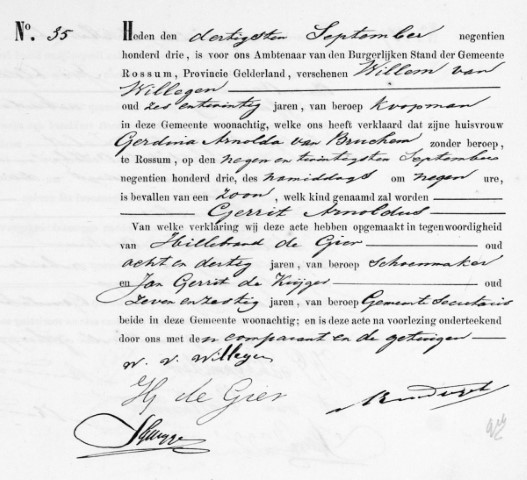 No. 35
Heden den dertigsten September negentien
honderd drie, is voor ons Ambtenaar van den Burgerlijken Stand der Gemeente
Rossum, Provincie Gelderland, verschenen Willem van
Willegen
oud zes en twintig jaren, van beroep Koopman
in deze Gemeente woonachtig, welke ons heeft verklaard dat zijne huisvrouw
Gerdina Arnolda van Bruchem zonder beroep,
te Rossum, op den negen en twintigsten September
negentien honderd drie, des namiddags om negen ure,
is bevallen van een Zoon, welk kind genaamd zal worden
Gerrit Arnoldus
Van welke verklaring wij deze acte hebben opgemaakt in tegenwoordigheid
van Hillebrand de Gier oud
acht en dertig jaren, van beroep Schoenmaker
en Jan Gerrit de Kuijzer
zeven en zestig jaren, van beroep Gemeente Secretaris
beide in deze Gemeente woonachtig; en is deze acte na voorlezing onderteekend
door ons met den comparant en de getuigen
W. v. Willegen
H de Gier